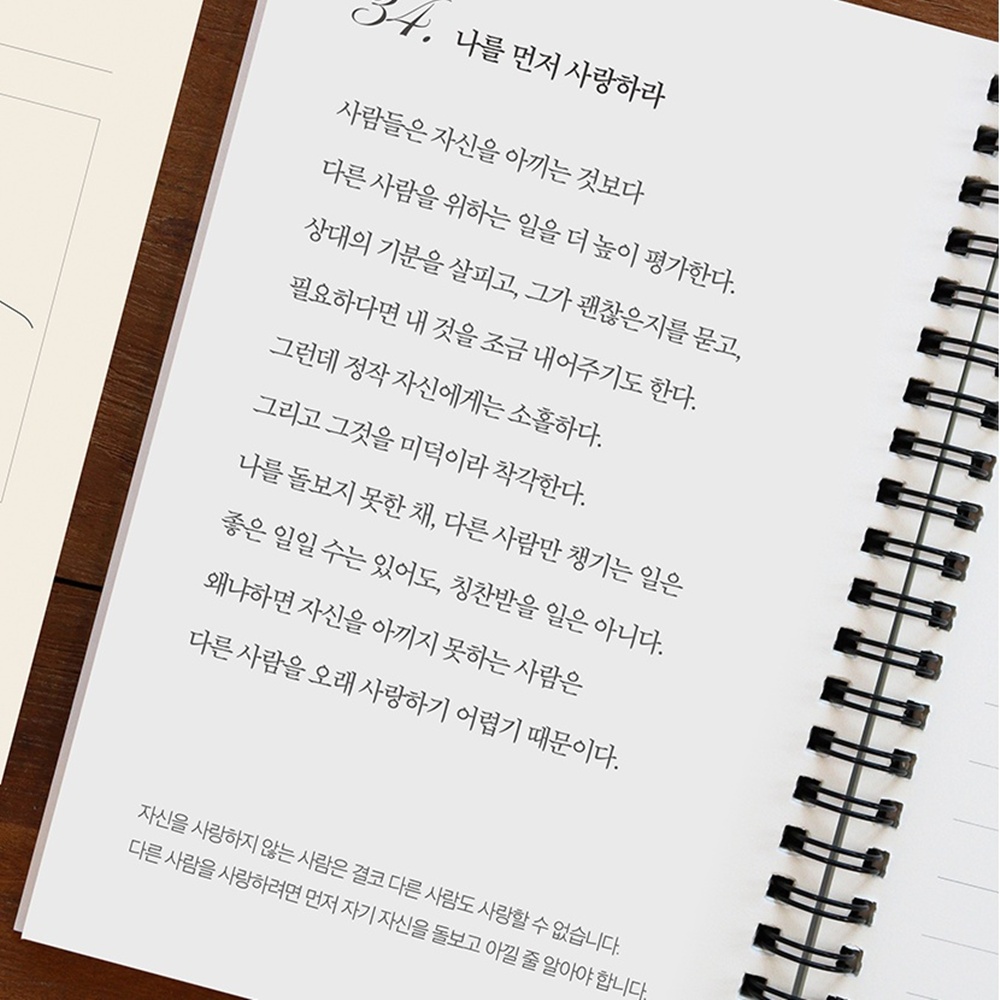 34. 나를 먼저 사랑하라
사람들은 자신을 아끼는 것보다
다른 사람을 위하는 일을 더 높이 평가한다.
상대의 기분을 살피고, 그가 괜찮은지를 묻고,
필요하다면 내 것을 조금 내어주기도 한다.
그런데 정작 자신에게는 소홀하다.
그리고 그것을 미덕이라 착각한다.
나를 돌보지 못한 채, 다른 사람만 챙기는 일은
좋은 일일 수는 있어도, 칭찬받을 일은 아니다.
왜냐하면 자신을 아끼지 못하는 사람은
다른 사람을 오래 사랑하기 어렵기 때문이다.
자신을 사랑하지 않는 사람은 결코 다른 사람도 사랑할 수 없습니다.
다른 사람을 사랑하려면 먼저 자기 자신을 돌보고 아낄 줄 알아야 합니다.